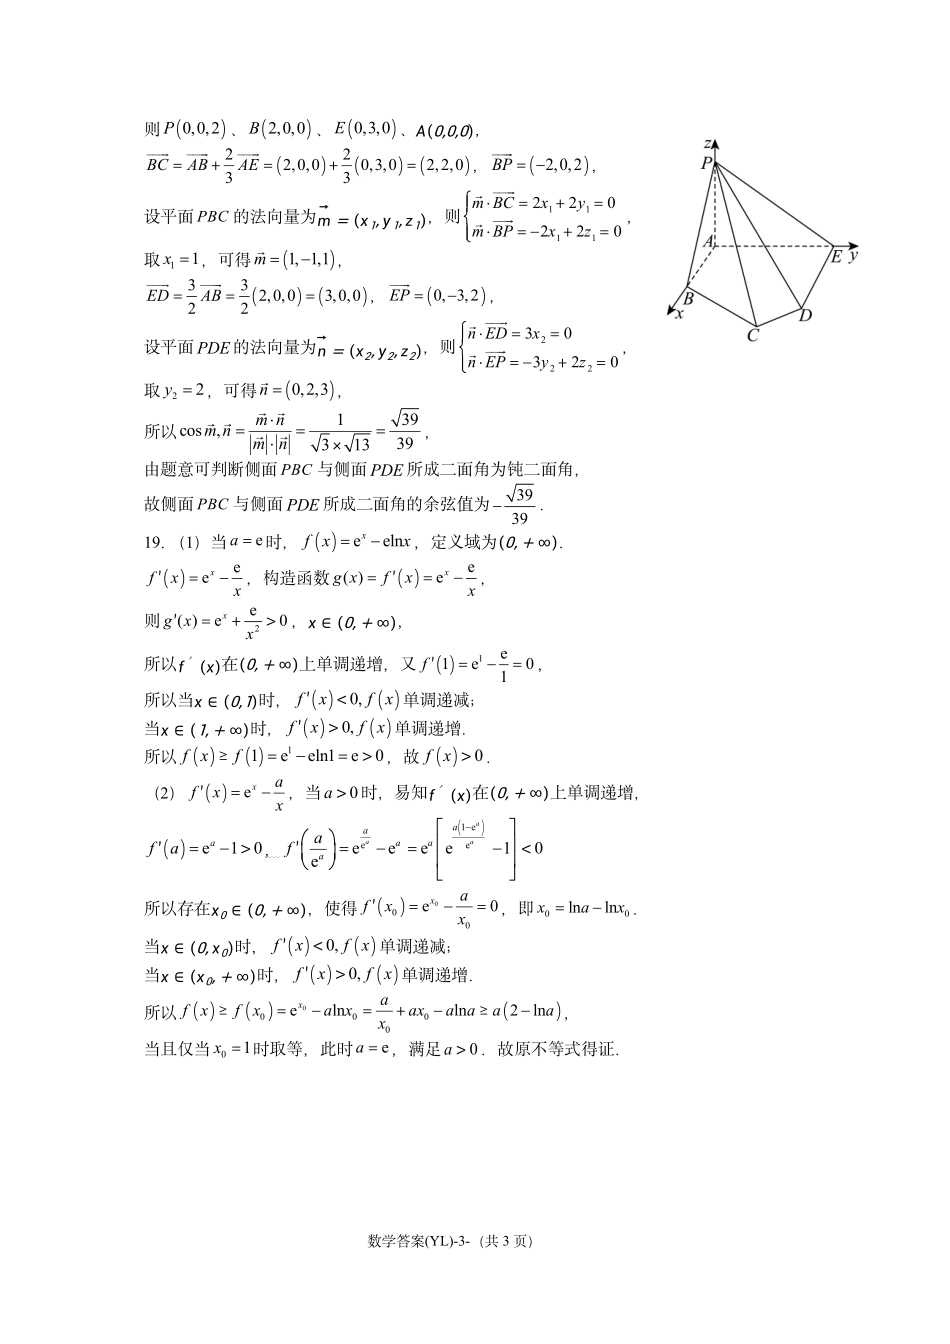 则 P(0,0,2)、B(2,0,0)、E(0,3,0)、A(0,0,0),
z
P
A
E y
B
x
D
C
BC = AB + 2/3 AE = (2,0,0) + 2/3 (0,3,0) = (2,2,0), BP = (−2,0,2),
设平面 PBC 的法向量为 m⃗ = (x₁, y₁, z₁), 则 { m⃗·BC = 2x₁ + 2y₁ = 0
m⃗·BP = −2x₁ + 2z₁ = 0 ,
取 x₁ = 1, 可得 m⃗ = (1,−1,1),
ED = 3/2 AB = 3/2 (2,0,0) = (3,0,0), EP = (0,−3,2),
设平面 PDE 的法向量为 n⃗ = (x₂, y₂, z₂), 则 { n⃗·ED = 3x₂ = 0
n⃗·EP = −3y₂ + 2z₂ = 0 ,
取 y₂ = 2, 可得 n⃗ = (0,2,3),
所以 cos m⃗,n⃗ = m⃗·n⃗ / |m⃗|·|n⃗| = 1/(√3×√13) = √39/39,
由题意可判断侧面 PBC 与侧面 PDE 所成二面角为钝二面角,
故侧面 PBC 与侧面 PDE 所成二面角的余弦值为 −√39/39.
19.（1）当 a = e 时, f(x) = e^x − elnx, 定义域为(0, + ∞).
f'(x) = e^x − e/x, 构造函数 g(x) = f'(x) = e^x − e/x,
则 g'(x) = e^x + e/x² > 0, x ∈ (0, + ∞),
所以f′(x)在(0, + ∞)上单调递增, 又 f'(1) = e¹ − e/1 = 0,
所以当x ∈ (0,1)时, f'(x) < 0, f(x) 单调递减;
当x ∈ (1, + ∞)时, f'(x) > 0, f(x) 单调递增.
所以 f(x) ≥ f(1) = e¹ − eln1 = e > 0, 故 f(x) > 0.
（2） f'(x) = e^x − a/x, 当 a > 0 时, 易知f′(x)在(0, + ∞)上单调递增,
f'(a) = e^a − 1 > 0, f'(a/e^a) = e^(a/e^a) − e^a = e^a [e^(a(1−e^a)/e^a) − 1] < 0
所以存在x₀ ∈ (0, + ∞), 使得 f'(x₀) = e^(x₀) − a/x₀ = 0, 即 x₀ = lna − lnx₀.
当x ∈ (0, x₀)时, f'(x) < 0, f(x) 单调递减;
当x ∈ (x₀, + ∞)时, f'(x) > 0, f(x) 单调递增.
所以 f(x) ≥ f(x₀) = e^(x₀) − alnx₀ = a/x₀ + ax₀ − alna ≥ a(2 − lna),
当且仅当 x₀ = 1 时取等, 此时 a = e, 满足 a > 0. 故原不等式得证.
数学答案(YL)-3-（共 3 页）